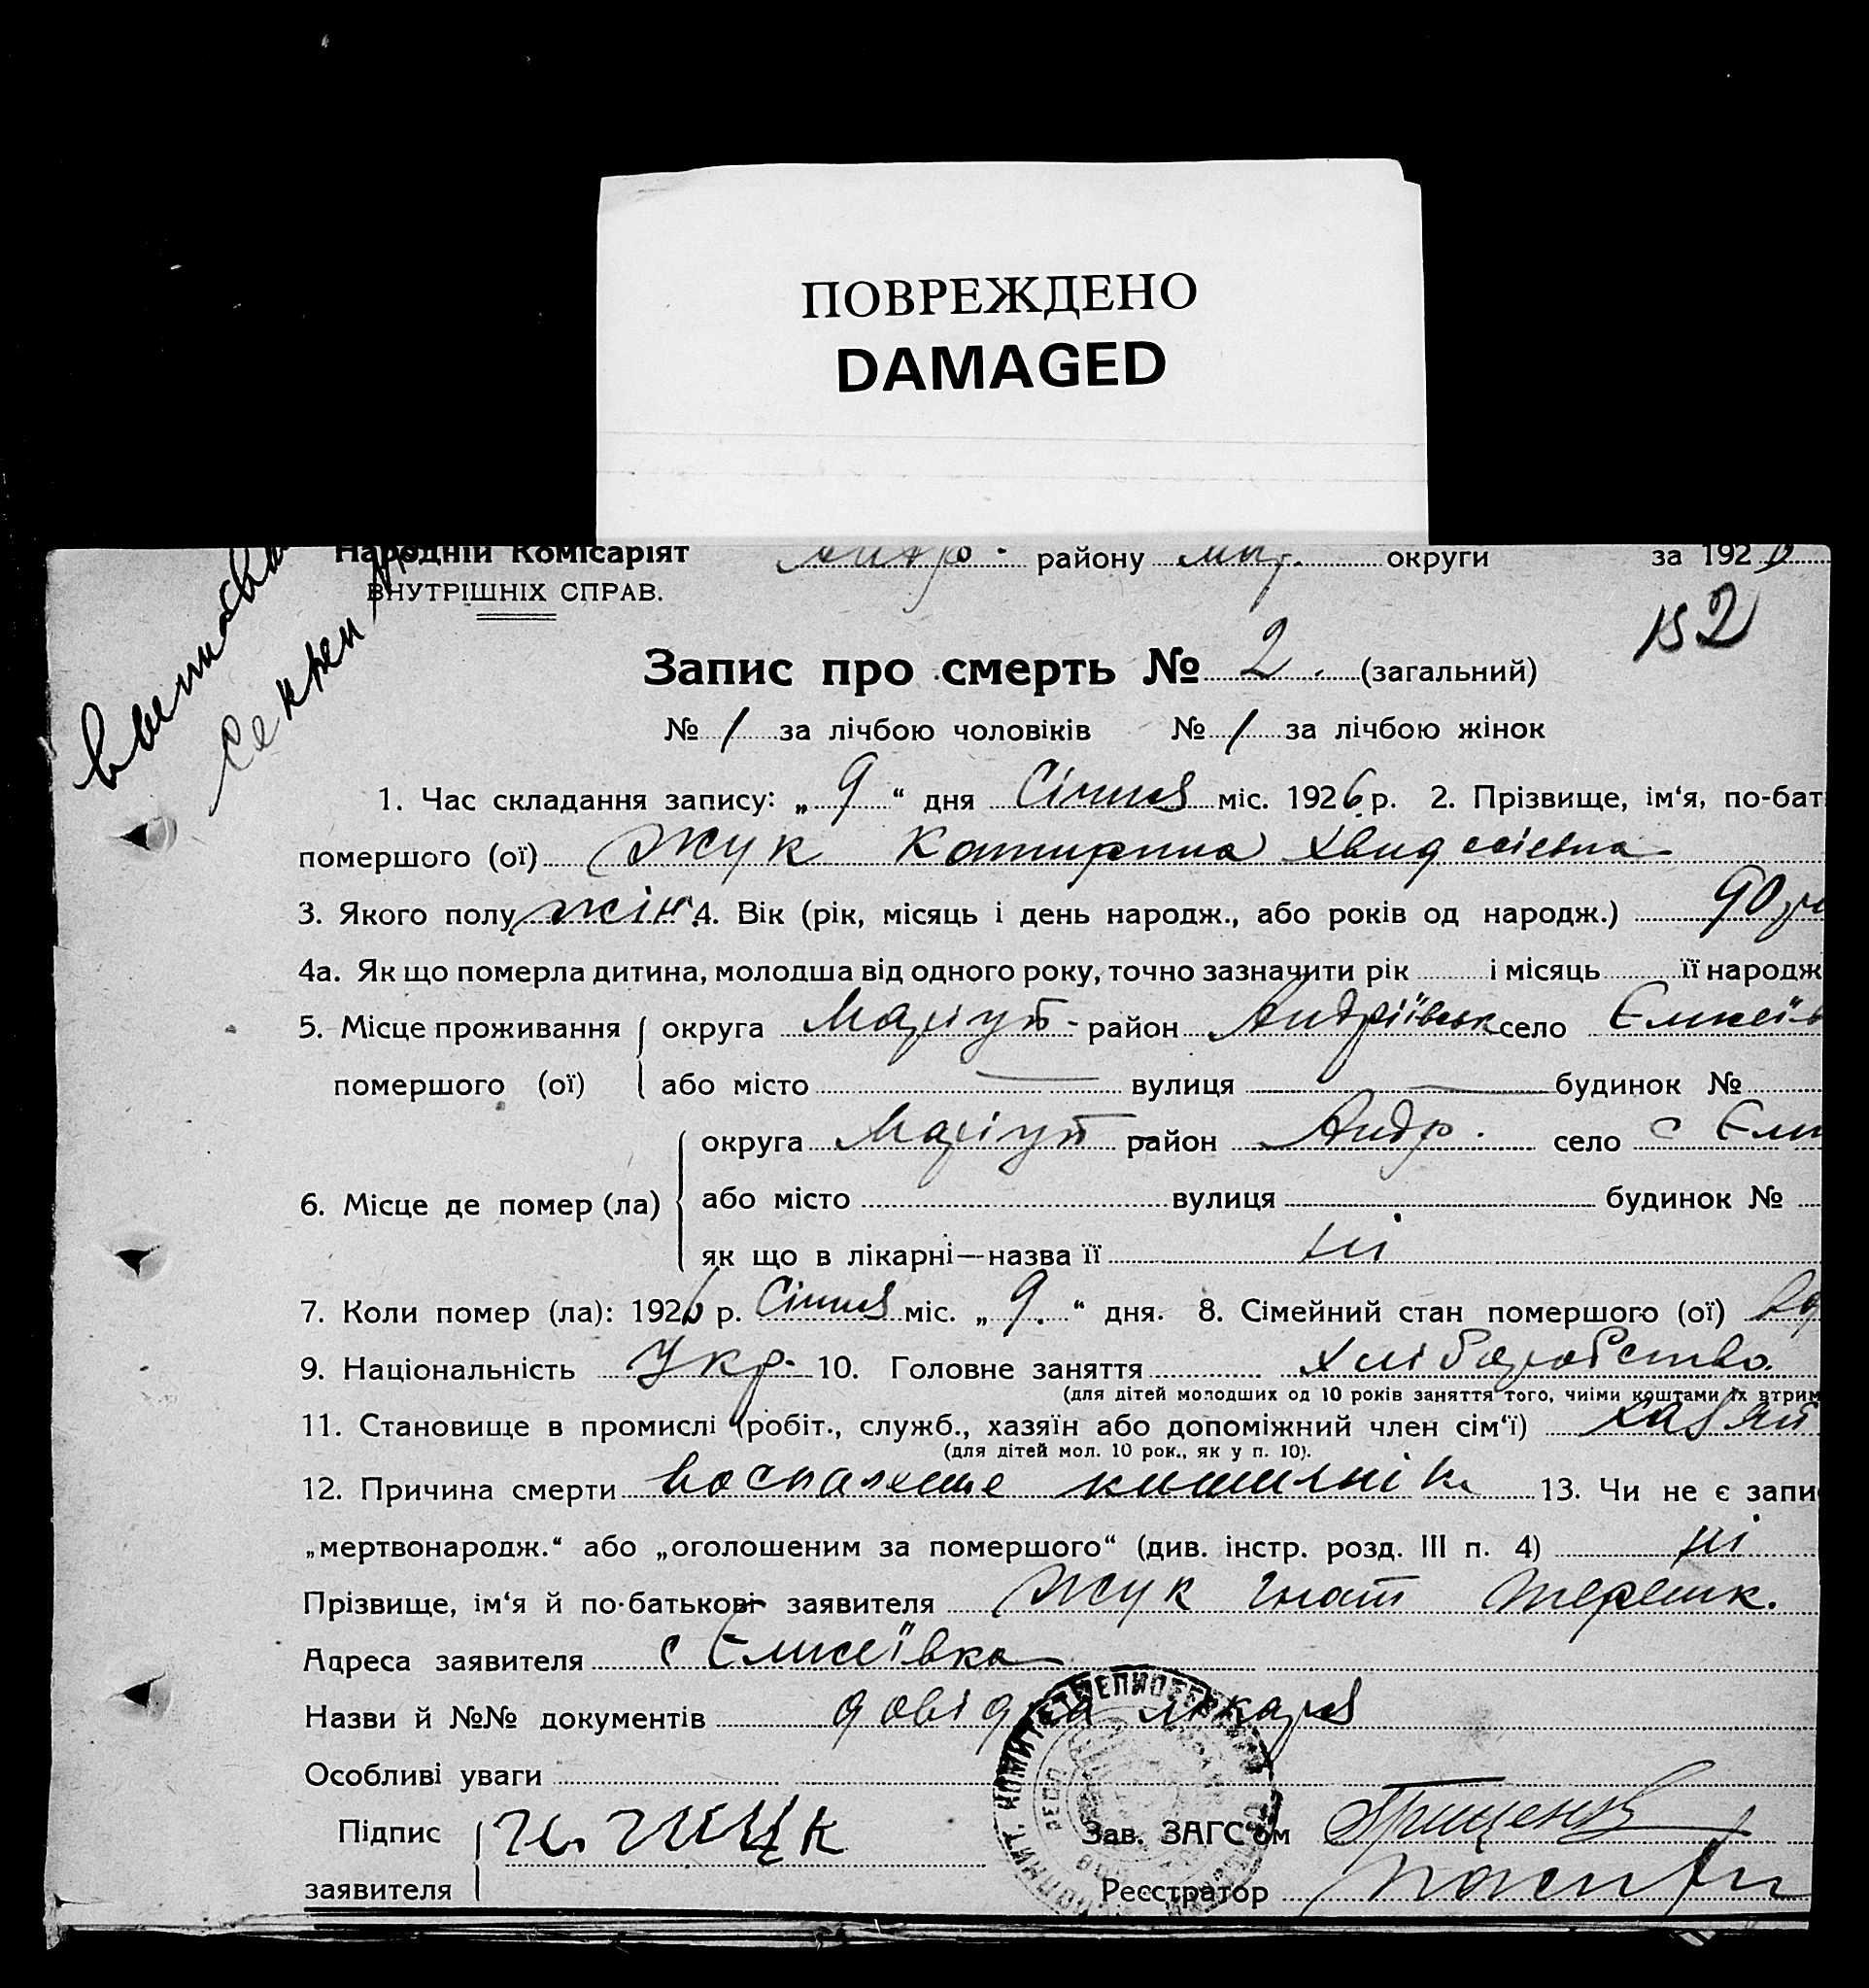 ПОВРЕЖДЕНО
DAMAGED
Народній Комісаріят Андр. району округи за 192
ВНУТРІШНІХ СПРАВ.
152
Запис про смерть № 2. (загальний)
№ 1 за лічбою чоловіків № 1 за лічбою жінок
1. Час складання запису: „ 9 “ дня Січня міс. 1926 р. 2. Прізвище, ім‘я, по-бат
помершого (ої) Жук Катирина
3. Якого полу жін. 4. Вік (рік, місяць і день народж., або років од народж.) 90
4а. Як що померла дитина, молодша від одного року, точно зазначити рік і місяць її народж
5. Місце проживання округа Маріуп район Андріївськ село Єлисеїв
помершого (ої) або місто — вулиця — будинок №
округа Маріуп район Андр. село с Єли
6. Місце де помер (ла) або місто вулиця будинок №
як що в лікарні—назва її ні
7. Коли помер (ла): 1926 р. Січня міс. „ 9 “ дня. 8. Сімейний стан помершого (ої)
9. Національність Укр. 10. Головне заняття хліборобство.
(для дітей молодших од 10 років заняття того, чиїми коштами їх втрим
11. Становище в промислі (робіт., служб., хазяїн або допоміжний член сім‘ї) хазяй
(для дітей мол. 10 рок., як у п. 10).
12. Причина смерти воспаление 13. Чи не є запи
„мертвонародж.“ або „оголошеним за помершого“ (див. інстр. розд. III п. 4) ні
Прізвище, ім‘я й по-батькові заявителя Жук Гнат Терешк.
Адреса заявителя с Єлисеївка
Назви й №№ документів довідка лікаря
Особливі уваги
Підпис
заявителя
Зав. ЗАГС‘ом
Реєстратор